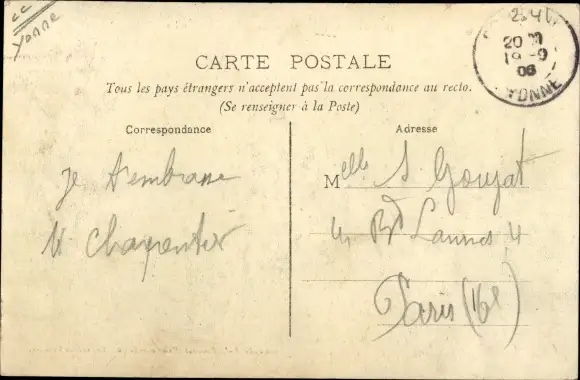 cc
Yonne
CARTE POSTALE
Tous les pays étrangers n'acceptent pas la correspondance au recto.
(Se renseigner à la Poste)
Correspondance
Adresse
20
19 -9
06
YONNE
Je t'embrasse
Charpentier
Melle S Goujat
Bd Lannes 4
Paris (16e)